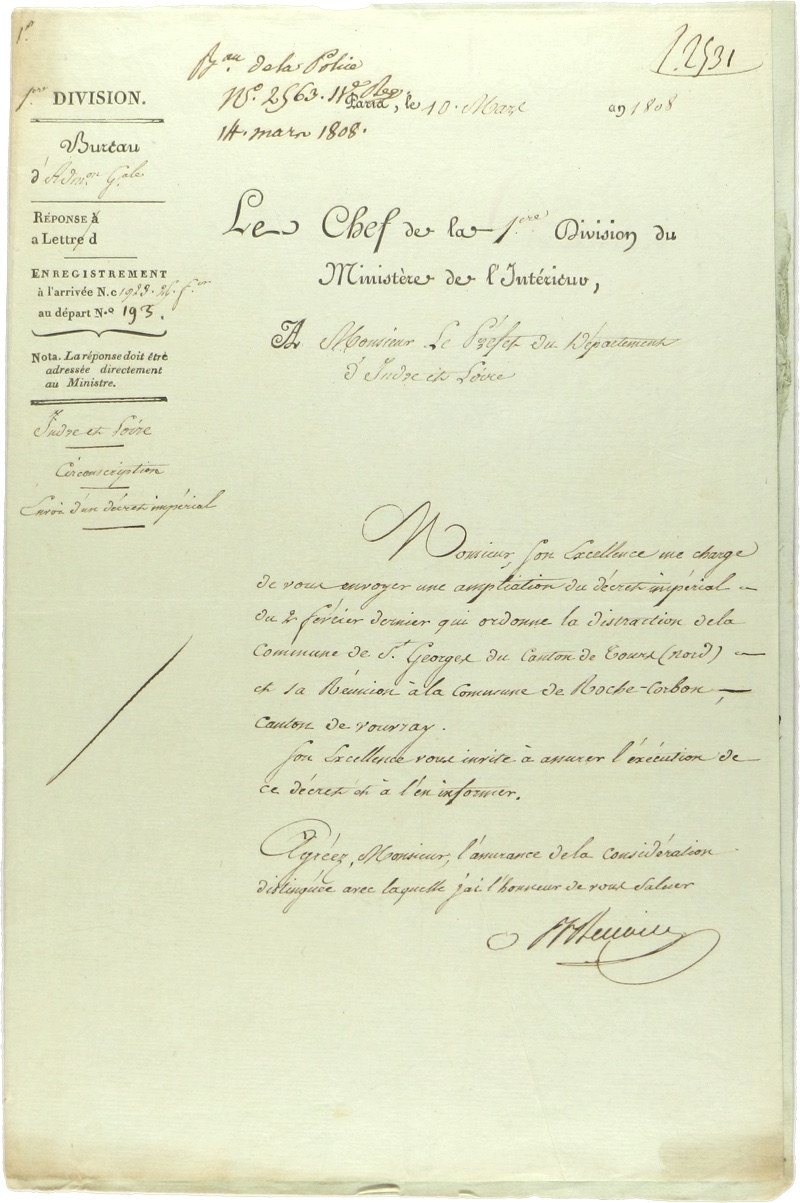 1º
Bau de la Police
Nº 2563. IVe Reg.
14. mars 1808.
2531
1ere DIVISION.
Bureau
d'Admon Gale
RÉPONSE à
a Lettre d
ENREGISTREMENT
à l'arrivée N.o 1923. 26. fer
au départ N.o 193.
Nota. La réponse doit être
adressée directement
au Ministre.
Indre et Loire
Circonscription
Envoi d'un décret impérial
Paris, le 10. Mars an 1808
Le Chef de la 1ere Division du
Ministère de l'Intérieur,
A Monsieur Le Préfet du Département
d'Indre et Loire
Monsieur, Son Excellence me charge
de vous envoyer une ampliation du décret impérial
du 2 février dernier qui ordonne la distraction de la
Commune de St Georges du Canton de Tours (nord)
et sa Réunion à la Commune de Roche-Corbon
Canton de vouvray.
Son Excellence vous invite à assurer l'exécution de
ce décret et à l'en informer.
Agréez, Monsieur, l'assurance de la considération
distinguée avec laquelle j'ai l'honneur de vous saluer